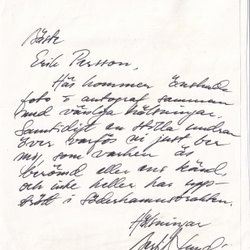 Bäste
Erik Persson,
Här kommer önskade
foto o autograf samman
med vänliga hälsningar.
Samtidigt en stilla undran
över varför ni just ber
mig, som varken är
berömd eller ens känd,
och inte heller har upp-
trätt i Söderhamnstrakten.
Hälsningar